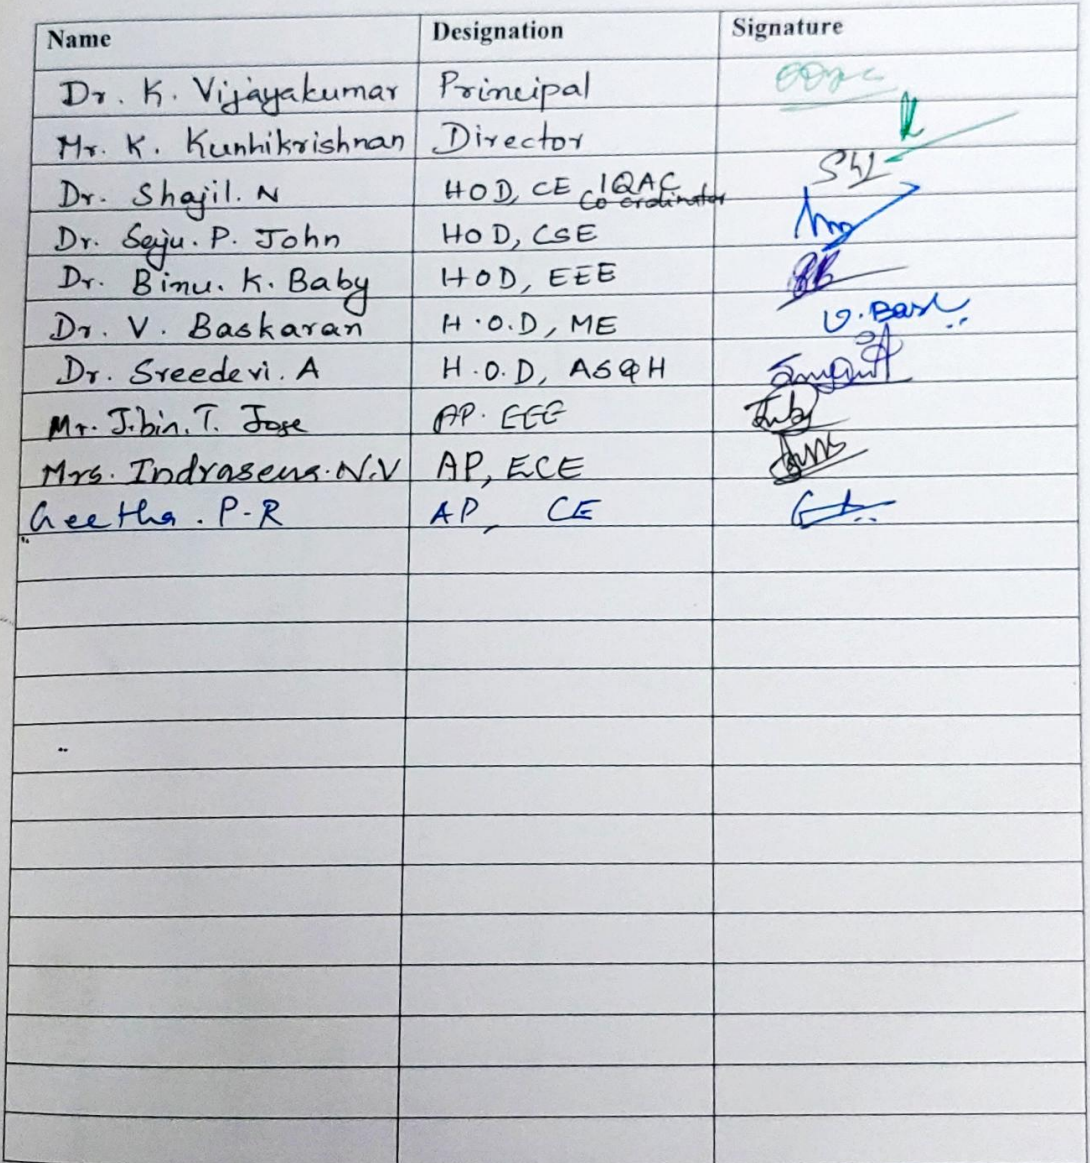 Name Designation Signature
Dr. K. Vijayakumar Principal
Mr. K. Kunhikrishnan Director
Dr. Shajil. N HOD, CE IQAC Co ordinator
Dr. Seju. P. John HOD, CSE
Dr. Binu. K. Baby HOD, EEE
Dr. V. Baskaran H.O.D, ME V. Bask
Dr. Sreedevi. A H.O.D, AS&H
Mr. Jibin. T. Jose AP. EEE
Mrs. Indrasena. N.V AP, ECE
Geetha. P-R AP, CE